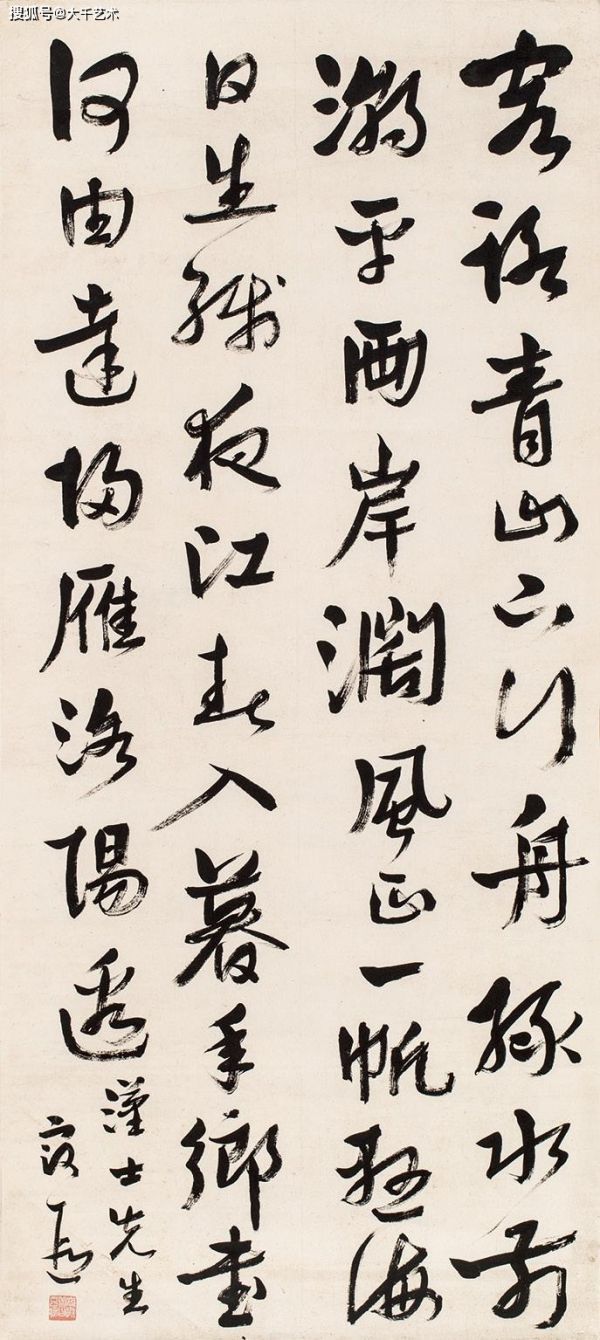 搜狐号@大千艺术
客路青山下行舟綠水前
潮平兩岸濶風正一帆懸海
日生殘夜江春入暮年鄉書
何由達歸雁洛陽邊
士先生